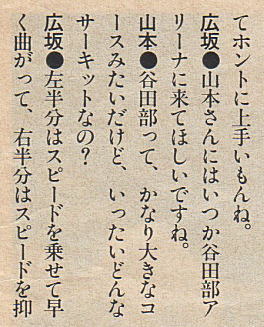 てホントに上手いもんね。
広坂●山本さんにはいつか谷田部ア
リーナに来てほしいですね。
山本●谷田部って、かなり大きなコ
ースみたいだけど、いったいどんな
サーキットなの？
広坂●左半分はスピードを乗せて早
く曲がって、右半分はスピードを抑